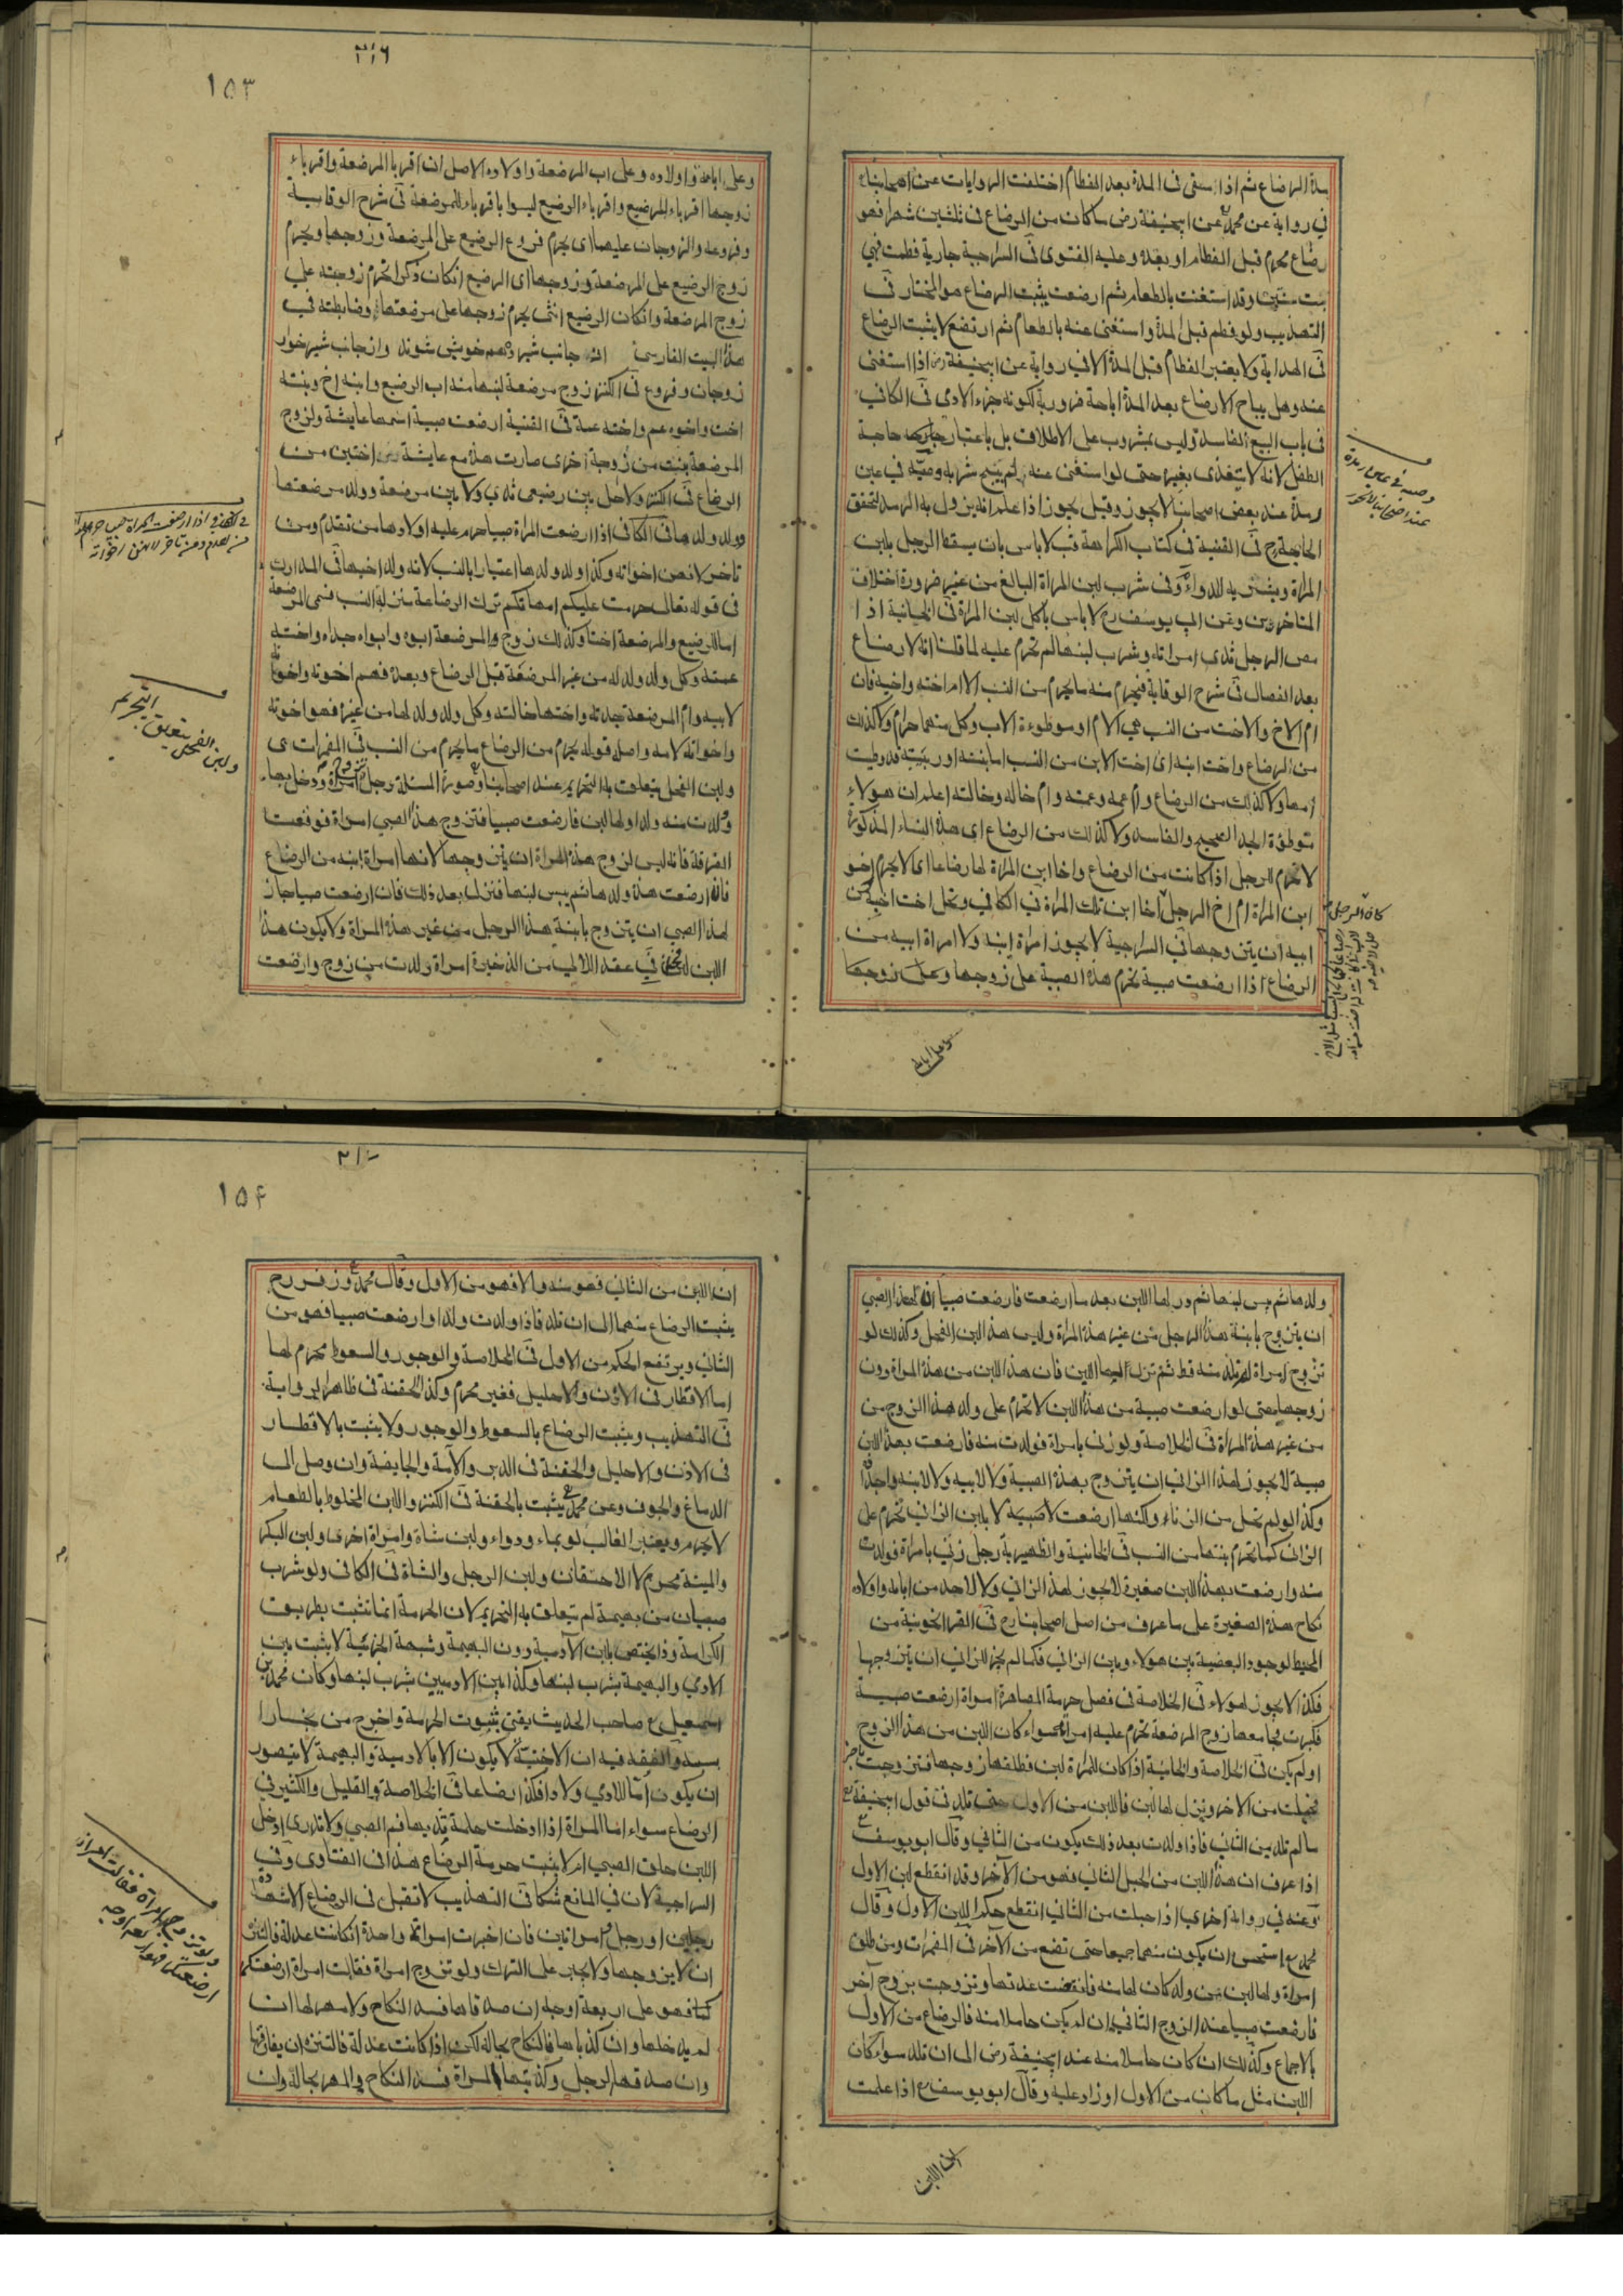 مدة الرضاع ثم اذا سقى فى المدة بعد الفطام اختلفت الروايات عن اصحابنا
في رواية عن محمد عن ابيحنيفة رض ما كان من الرضاع فى ثلثين شهرا فهو
رضاع محرم قبل الفطام او بعده وعليه الفتوى فى السراجية جارية فطمت فهي
بنت سنتين وقد استغنت بالطعام ثم ارضعت يثبت الرضاع هو المختار فى
التهذيب ولو فطم قبل المدة واستغنى عنه بالطعام ثم ارتضع لا يثبت الرضاع
فى الهداية ولا يعتبر الفطام قبل المدة الا في رواية عن ابيحنيفة رض اذا استغنى
عنه وهل يباح الارضاع بعد المدة اباحة ضرورية لكونه جزء الادمى فى الكافي
فى باب البيع الفاسد وليس بمشروب على الاطلاق بل باعتبار حاجة
الطفل لانه لا يتغذى بغيره حتى لو استغنى عنه لم يبح شربه وصبه في عين
رمدة عند بعض اصحابنا لا يجوز وقيل يجوز اذا علم انه يزول به الرمد لتحقق
الحاجة فى القنية فى كتاب الكراهة لا باس بان يسعط الرجل بلبن
المراة ويشربه للدواء وفى شرب لبن المراة البالغ من غير ضرورة اختلاف
المتاخرين وعن ابي يوسف رح لا باس باكل لبن المراة فى الخانية اذا
مص الرجل ثدي امراته وشرب لبنها لم تحرم عليه لما قلنا انه لا رضاع
بعد الفصال فى شرح الوقاية فيحرم منه ما يحرم من النسب الا ام اخته واخيه فان
ام الاخ والاخت من النسب هي الام او موطوءة الاب وكل منهما حرام ولا كذلك
من الرضاع واخت ابنه اى اخت الابن من النسب اما بنته او ربيبته قد وطيت
امها ولا كذلك من الرضاع وام عمه وعمته وام خاله وخالته اعلم ان هولاء
موطوءة الجد الصحيح والفاسد ولا كذلك من الرضاع اى هذه النساء المذكورة
لا تحرم للرجل اذا كانت من الرضاع واخا ابن المراة لها رضاعا اى لا يحرم اخو
ابن المراة ام اخ الرجل اخا ابن تلك المراة فى الكافي وتحل اخت اخيه من
ابيه ان يتزوجها فى السراجية لا يجوز امراة ابنه ولا امراة ابيه من
الرضاع اذا ارضعت صبية تحرم هذه الصبية على زوجها وعلى زوجها
وعلى ابائه
عند اصحابنا لا يجوز
٢١٦
١٥٣
وعلى ابائه واولاده وعلى اب المرضعة واولاده الاصل ان اقربا المرضعة واقرباء
زوجها اقرباء للرضيع واقرباء الرضيع ليسوا باقرباء للمرضعة فى شرح الوقاية
وفروعه والزوجان عليهما اى يحرم فروع الرضيع على المرضعة وزوجها ويحرم
زوج الرضيع على المرضعة وزوجها اى الرضيع ان كان ذكرا تحرم زوجته على
زوج المرضعة وان كان الرضيع انثى يحرم زوجها على مرضعتها وضابطته في
هذا البيت الفارسى از جانب شيرده همه خويش شوند واز جانب شيرخوار
زوجان وفروع فى الكنز زوج مرضعة لبنها منه اب الرضيع وابنه اخ وبنته
اخت واخوه عم واخته عمة فى القنية ارضعت صبية اسمها عايشة ولزوج
المرضعة بنت من زوجة اخرى صارت هذه مع عايشة اختين من
الرضاع فى الكنز ولا حل بين رضيعى ثدي ولا بين مرضعة وولد مرضعتها
وولد ولدها فى الكافى اذا ارضعت المراة صبيا حرم عليه اولادها من تقدم ومن
تاخر لانهن اخواته وكذا ولد ولدها اعتبارا بالنسب لانه ولد اخيها فى المدارك
فى قوله تعالى حرمت عليكم امهاتكم نزل الرضاعة منزلة النسب فسمى المرضعة
اما للرضيع والمرضعة اختا وكذلك زوج المرضعة ابوه وابواه جداه واخته
عمته وكل ولد ولد له من غير المرضعة قبل الرضاع وبعده فهم اخوته واخواته
لابيه وام المرضعة جدته واختها خالته وكل ولد ولد لها من غيره فهو اخوته
واخواته لامه واصله قوله يحرم من الرضاع ما يحرم من النسب فى المضمرات
ولبن الفحل يتعلق به التحريم عند اصحابنا وصورة المسئلة رجل تزوج امراة ودخل بها
وولدت منه ولدا ولها لبن فارضعت صبيا فتزوج هذا الصبى امراة فوقعت
الفرقة فانه ليس لزوج هذه المراة ان يتزوجها لانها امراة ابنه من الرضاع
فان ارضعت هذه ولدها ثم يبس لبنها فنزل بعد ذلك فان ارضعت صبيا جاز
لهذا الصبي ان يتزوج بابنة هذا الرجل من غير هذه المراة ولا يكون هذا
اللبن للفحل فى عقد اللالي من الذخيرة امراة ولدت من زوج وارضعت
ولبن الفحل يتعلق التحريم
ولدها ثم يبس لبنها ثم در لها اللبن بعد ما ارضعت فارضعت صبيا ان لهذا الصبي
ان يتزوج بابنة هذا الرجل من غير هذه المراة وليس هذا اللبن للفحل وكذلك لو
تزوج امراة لم تلد منه قط ثم نزل اليها اللبن فان هذا اللبن من هذه المراة دون
زوجها حتى لو ارضعت صبية من هذا اللبن لا تحرم على ولد هذا الزوج من
من غير هذه المراة فى الخلاصة ولو زنى بامراة فولدت منه فارضعت بهذا اللبن
صبية لا يجوز لهذا الزاني ان يتزوج بهذه الصبية ولا لابيه ولا لابنه واجداده
وكذا لو لم تحبل من الزناء ولكنها ارضعت لا صبية لا بلبن الزاني تحرم على
الزانى كما تحرم بنتها من النسب فى الخانية والظهيرية رجل زنى بامراة فولدت
منه وارضعت بهذا اللبن صغيرة لا يجوز لهذا الزاني ولا لاحد من ابائه واولاده
نكاح هذه الصغيرة على ما عرف من اصل اصحابنا رح فى
المحيط لوجود البعضية بين هولاء وبين الزانى فكما لم يجز للزانى ان يتزوجها
فكذا لا يجوز لهولاء فى الخلاصة فى فصل حرمة المصاهرة امراة ارضعت صبية
فكبرت فجامعها زوج المرضعة تحرم عليه امراته سواء كان اللبن من هذا الزوج
او لم يكن فى الخلاصة والخانية اذا كان للمراة لبن فطلقها زوجها فتزوجت باخر
فحبلت من الاخر ونزل لها لبن فاللبن من الاول حتى تلد فى قول ابيحنيفة
ما لم تلد من الثانى فاذا ولدت بعد ذلك يكون من الثانى وقال ابو يوسف
اذا عرف ان هذا اللبن من الحبل الثاني فهو من الآخر وقد انقطع لبن الاول
وعنه في رواية اخرى اذا حبلت من الثانى انقطع حكم اللبن الاول وقال
محمد استحسن ان يكون منهما جميعا حتى تضع من الآخر فى المضمرات ومن طلق
امراة ولها لبن من ولد كان لها منه فانقضت عدتها وتزوجت بزوج آخر
فارضعت صبيا عند الزوج الثانى فان لم يكن حاملا منه فالرضاع من الاول
بالاجماع وكذلك ان كان حاملا منه عند ابيحنيفة رض الى ان تلد سواء كان
اللبن مثل ما كان من الاول او زاد عليه وقال ابو يوسف اذا علمت
ان اللبن
٢١٧
١٥٤
ان اللبن من الثاني فهو منه والا فهو من الاول وقال محمد وزفر رح
يثبت الرضاع منهما الى ان تلد فاذا ولدت ولدا وارضعت صبيا فهو من
الثانى ويرتفع الحكم من الاول فى الخلاصة والوجور والسعوط محرم لها
اما الاقطار فى الاذن والاحليل فغير محرم وكذا الحقنة فى ظاهر الرواية
فى التهذيب ويثبت الرضاع بالسعوط والوجور ولا يثبت بالاقطار
فى الاذن والاحليل والحقنة فى الدبر والآمة والجايفة وان وصل الى
الدماغ والجوف وعن محمد يثبت بالحقنة فى الكنز واللبن المخلوط بالطعام
لا يحرم ويعتبر الغالب لو بماء ودواء ولبن شاة وامراة اخرى ولبن البكر
والميتة محرم لا الاحتقان ولبن الرجل والشاة فى الكافى ولو شرب
صبيان من بهيمة لم يتعلق به التحريم لان الحرمة انما تثبت بطريق
الكرامة وذا يختص بلبن الآدمية دون البهيمة وشبهة الجزئية لا يثبت بين
الادمي والبهيمة بشرب لبنها وكذا بين الادميين بشرب لبنها وكان محمد بن
اسمعيل صاحب الحديث يفتى بثبوت الحرمة واخرج من بخارا
بسببه والفقه فيه ان الاختية لا يكون الا بالادمية والبهيمة لا يتصور
ان يكون أمّا للادمي ولادا فكذا رضاعا فى الخلاصة والقليل والكثير في
الرضاع سواء اما المراة اذا ادخلت حلمة ثديها فم الصبي ولا تدرى ادخل
اللبن حلق الصبي ام لا يثبت حرمة الرضاع هذا فى الفتاوى وفى
السراجية لان في المانع شكا فى التهذيب لا تقبل فى الرضاع الا شهادة
رجلين او رجل وامراتين فان اخبرت امراة واحدة ان كانت عدلة فالتنزه
ان لا يزوجها ولا يجبر على الترك ولو تزوج امراة فقالت امراة ارضعتكما
كما فهو على اربعة اوجه ان صدقاها فسد النكاح ولا مهر لها ان
لم يدخلها وان كذباها فالنكاح بحاله لكن اذا كانت عدلة فالتنزه ان يفارقها
وان صدقها الرجل وكذبتها المراة فسد النكاح والمهر بحاله وان
ولو تزوج امراة فقالت امراة
ارضعتكما فهو اربعة اوجه